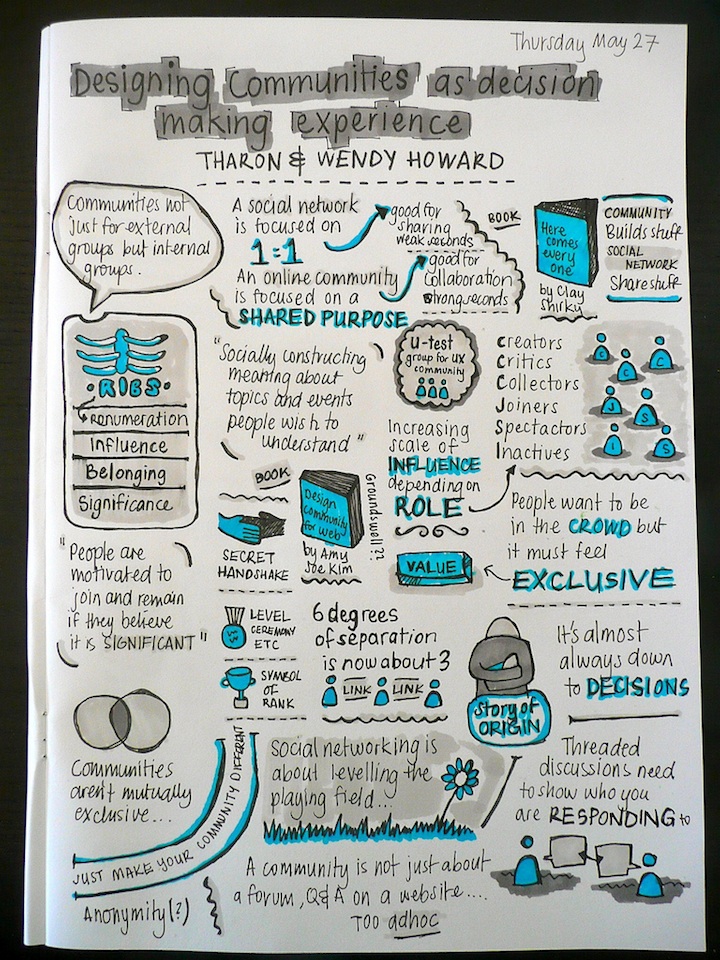 Thursday May 27
Designing Communities as decision
making experience
THARON & WENDY HOWARD
Communities not
just for external
groups but internal
groups.
A social network
is focused on
1:1
good for
sharing
weak seconds
An online community
is focused on a
SHARED PURPOSE
good for
collaboration
strong seconds
BOOK
Here
comes
every
one
by Clay
Shirky
COMMUNITY
Builds stuff
SOCIAL
NETWORK
Share stuff
RIBS
Renumeration
Influence
Belonging
Significance
"Socially constructing
meaning about
topics and events
people wish to
understand"
U-test
group for UX
community
Creators
Critics
Collectors
Joiners
Spectactors
Inactives
C
C
C
J
S
I
S
Increasing
scale of
INFLUENCE
depending on
ROLE
BOOK
Design
community
for web
by Amy
Joe Kim
Groundswell??
SECRET
HANDSHAKE
VALUE
People want to be
in the CROWD but
it must feel
EXCLUSIVE
"People are
motivated to
join and remain
if they believe
it is SIGNIFICANT"
LEVEL
CEREMONY
ETC
SYMBOL
OF
RANK
6 degrees
of separation
is now about 3
LINK
LINK
Story of
ORIGIN
It's almost
always down
to DECISIONS
Communities
aren't mutually
exclusive....
JUST MAKE YOUR COMMUNITY DIFFERENT
Anonymity(?)
Social networking is
about levelling the
playing field...
Threaded
discussions need
to show who you
are RESPONDING to
A community is not just about
a forum, Q&A on a website....
TOO adhoc